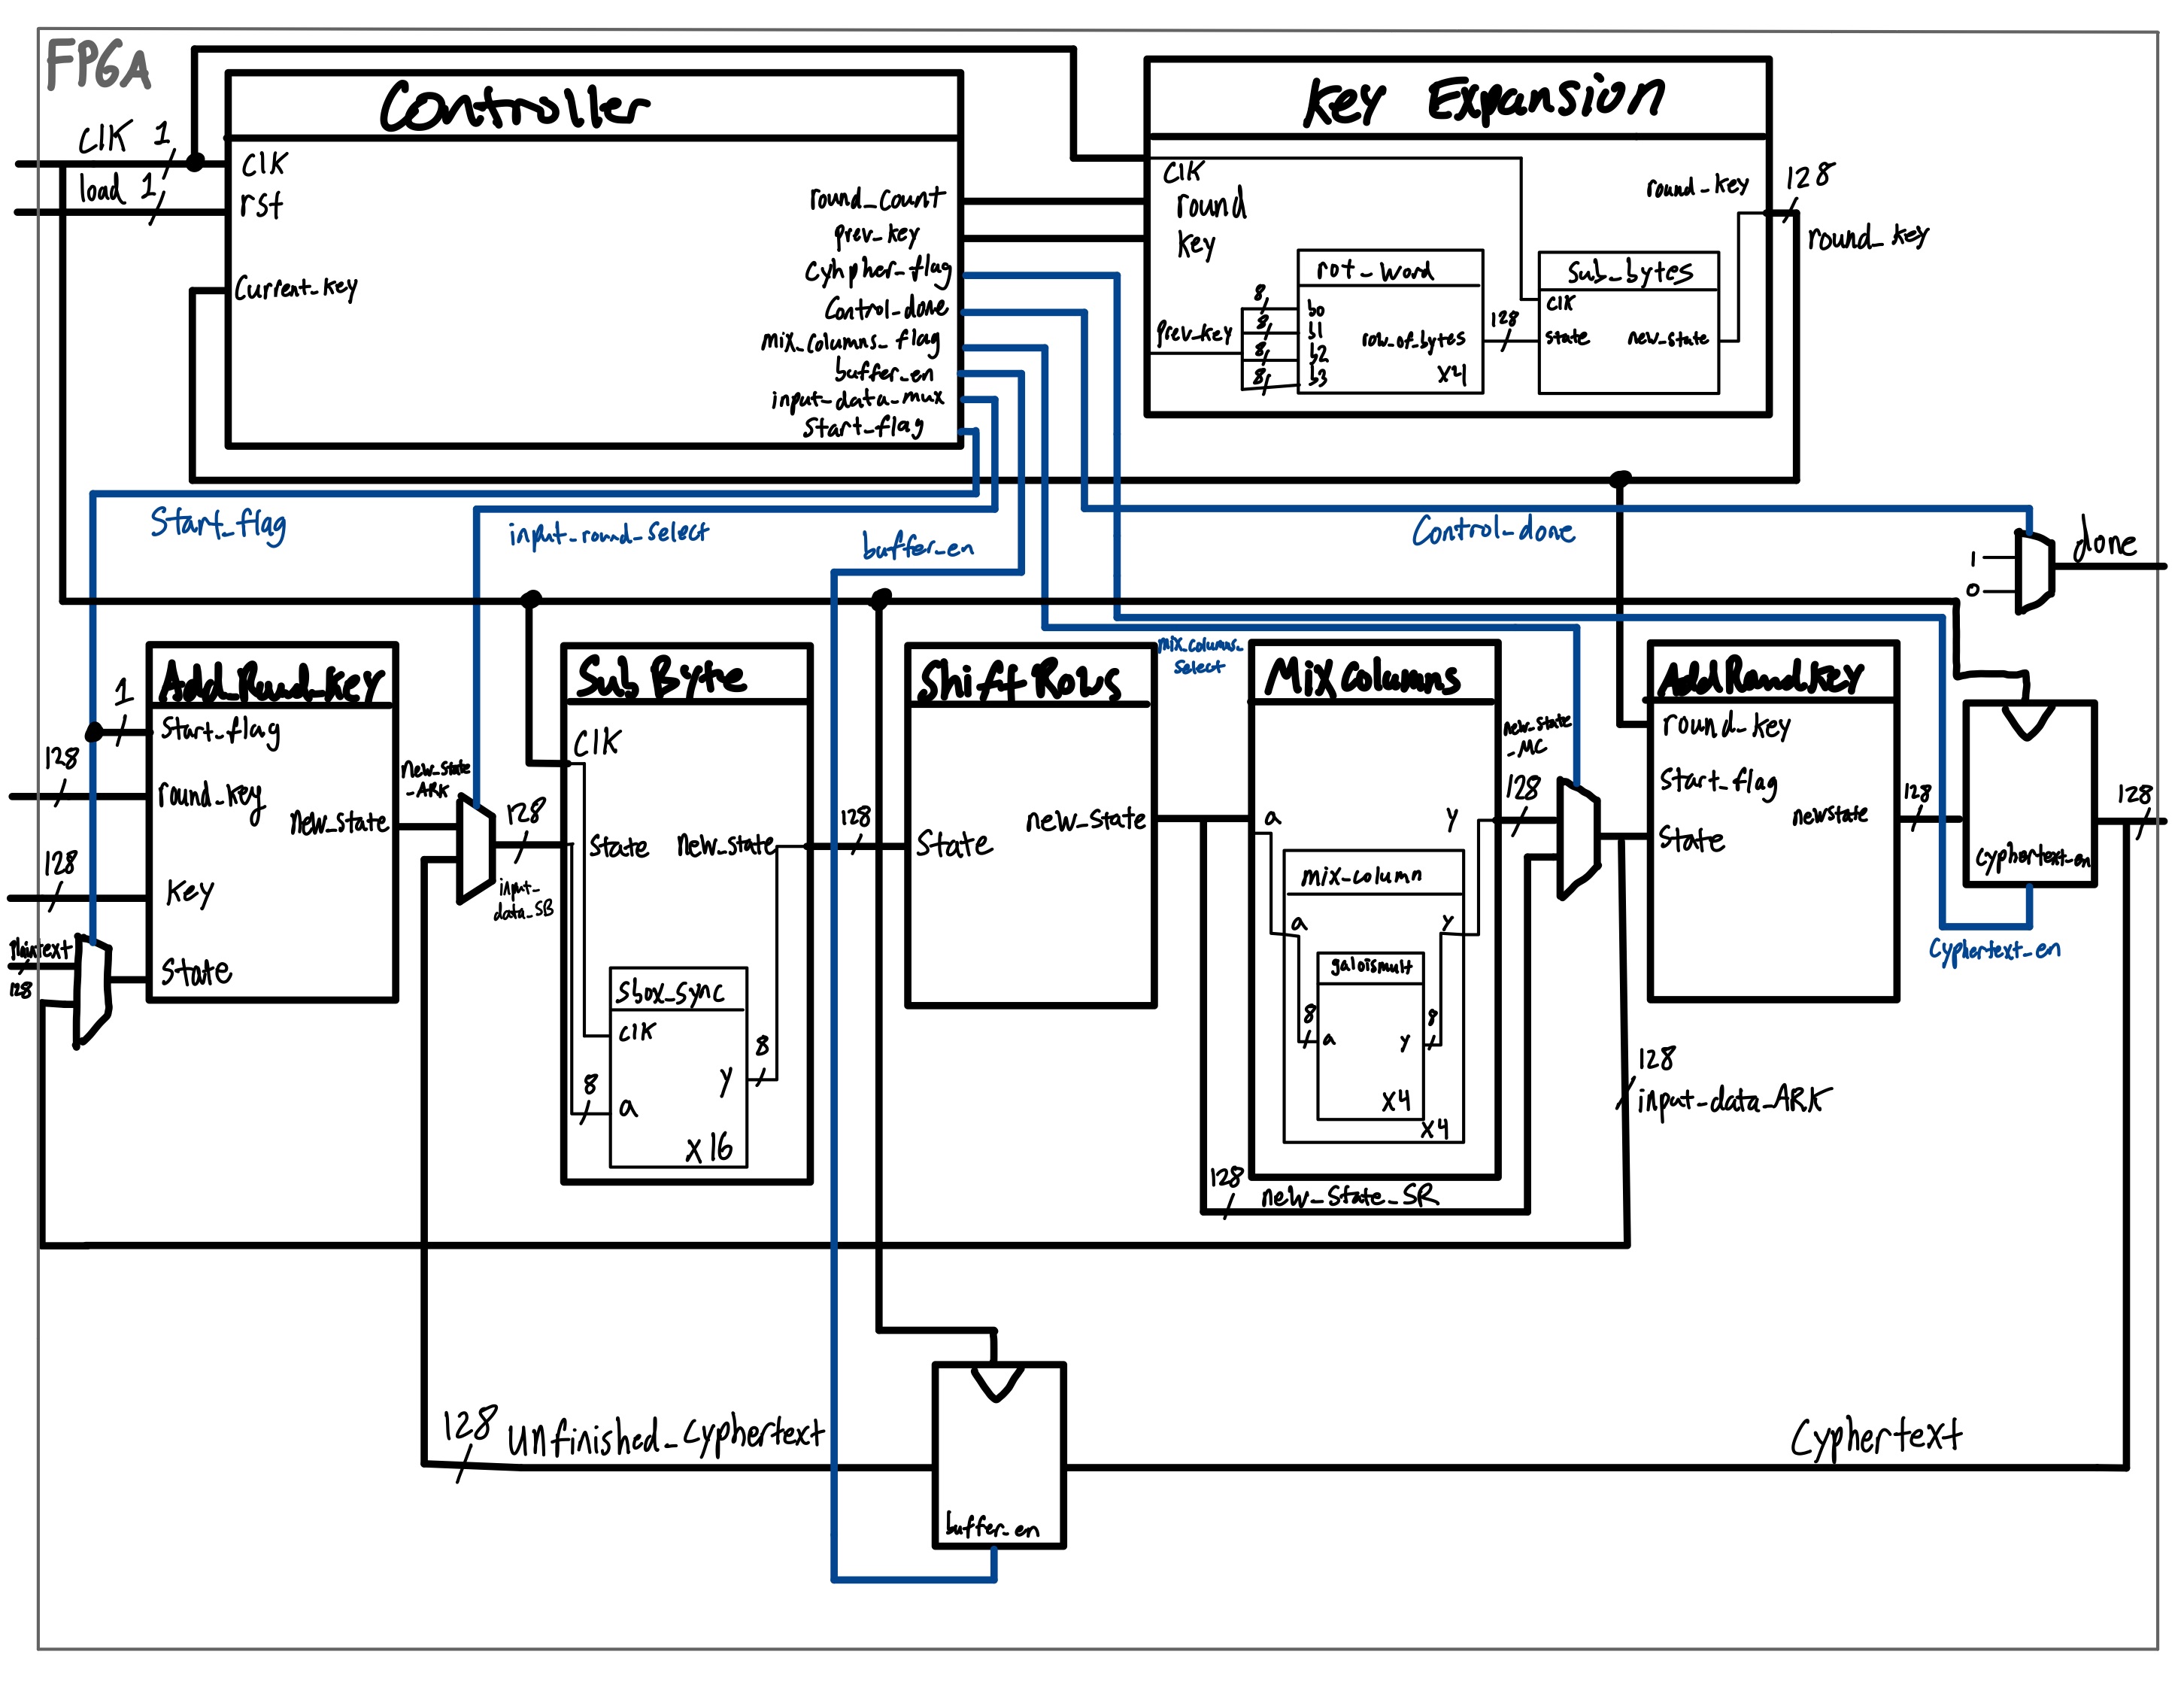 FPGA
Controller
Key Expansion
ClK 1
load 1
ClK
rst
Current_key
round_count
prev_key
Cyhpher_flag
Control_done
mix_columns_flag
buffer_en
input_data_mux
Start_flag
ClK
round
key
round_key
128
round_key
prev_key
8
8
8
8
rot_word
b0
b1
b2
b3
row_of_bytes
x4
128
Sub_bytes
ClK
state
new_state
Start_flag
input_round_select
buffer_en
Control_done
1
0
done
Add_Round_key
1
Start_flag
128
round_key
new_state
128
key
plaintext
128
State
new_state
_ARK
128
input_
data_SB
Sub Byte
ClK
State
new_state
sbox_sync
clk
8
a
y
8
x16
128
Shift Rows
State
new_state
mix_columns_
Select
Mix Columns
a
y
mix_column
a
y
galoismult
8
a
y
8
x4
x4
128
new_state_SR
new_state
_MC
128
Add Round key
round_key
Start_flag
State
newstate
128
Cyphertext_en
128
Cyphertext_en
128
input_data_ARK
128
Unfinished_Cyphertext
buffer_en
Cyphertext